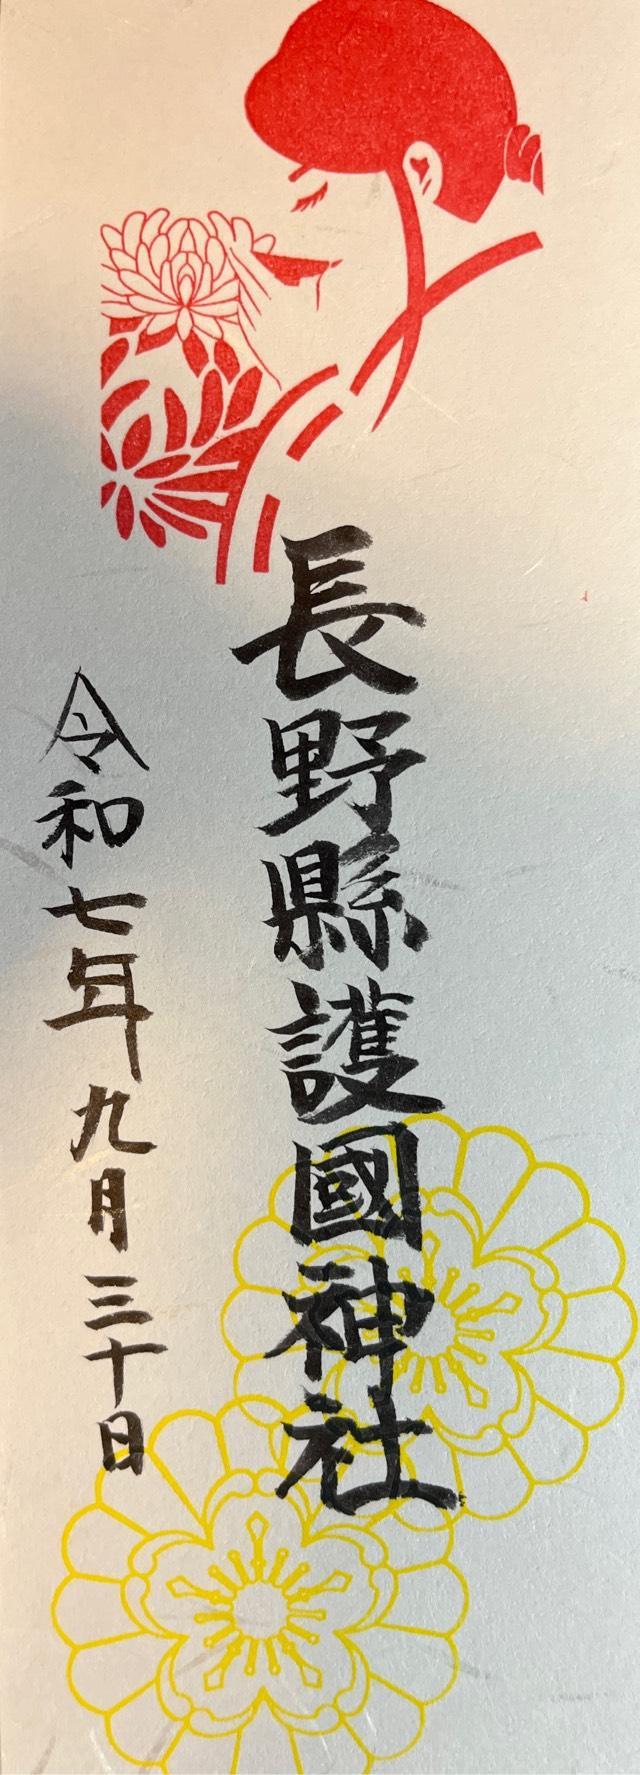 長野縣護國神社
令和七年九月三十日